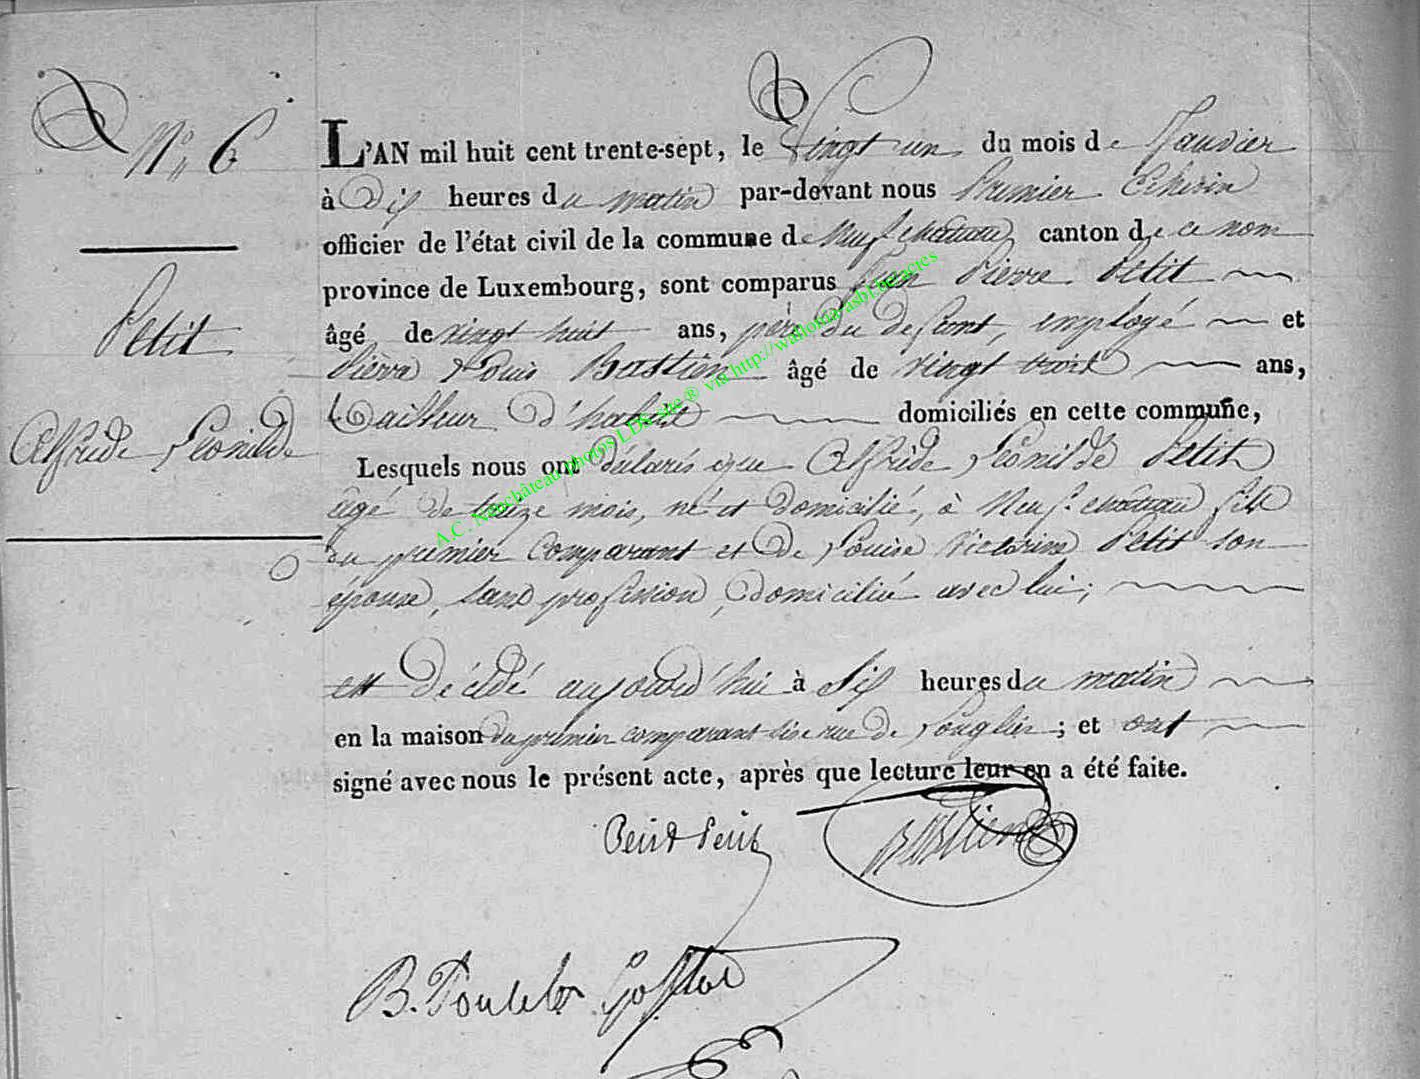 N° 6
Petit
Alfride Léonilde
L'AN mil huit cent trente-sept, le Vingt un du mois de Janvier
à Dix heures du matin par-devant nous Premier Echevin
officier de l'état civil de la commune de Neufchateau canton de ce nom
province de Luxembourg, sont comparus Jean Pierre Petit
âgé de vingt huit ans, père du defunt, employé et
Pierre Louis Bastien âgé de vingt trois ans,
Tailleur d'habits domiciliés en cette commune,
Lesquels nous ont déclaré que Alfride Léonilde Petit
agé de treize mois, né et domicilié, à Neufchateau fils
du premier comparant et de Louise Victorine Petit son
épouse, sans profession, domiciliée avec lui;
est décédé aujourd'hui à Six heures du matin
en la maison du premier comparant sise rue de ; et ont
signé avec nous le présent acte, après que lecture leur en a été faite.
Petit Petit Bastien
B.
A.C. Neufchâteau photos LDS, site ® via http://wallonia-asbl.be/actes